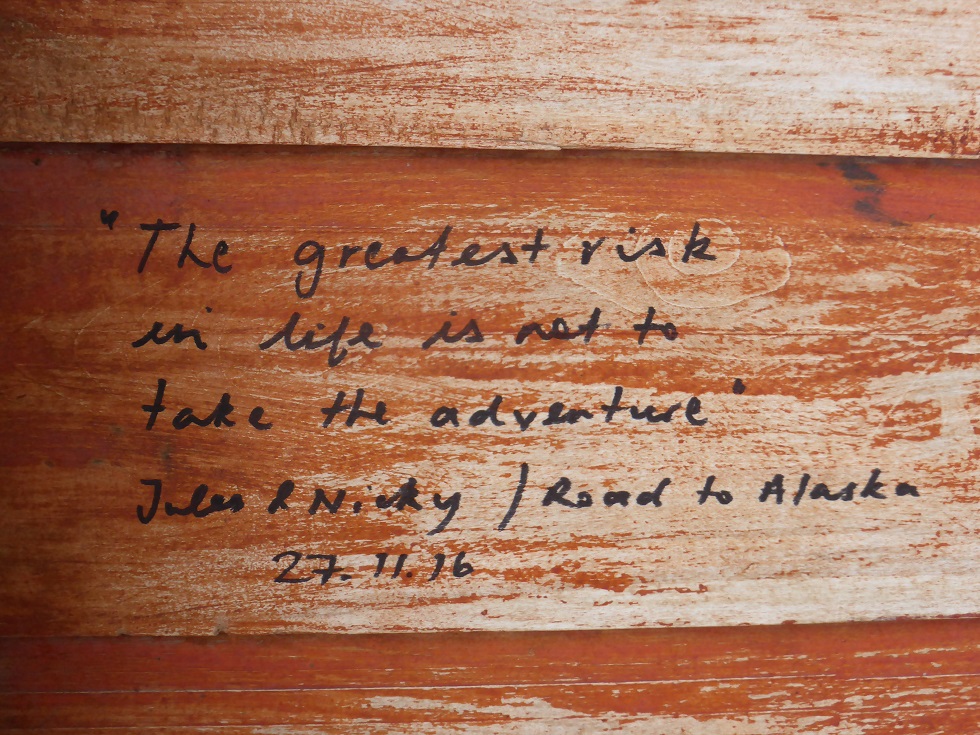 "The greatest risk
in life is not to
take the adventure"
Jules & Nicky / Road to Alaska
27.11.16